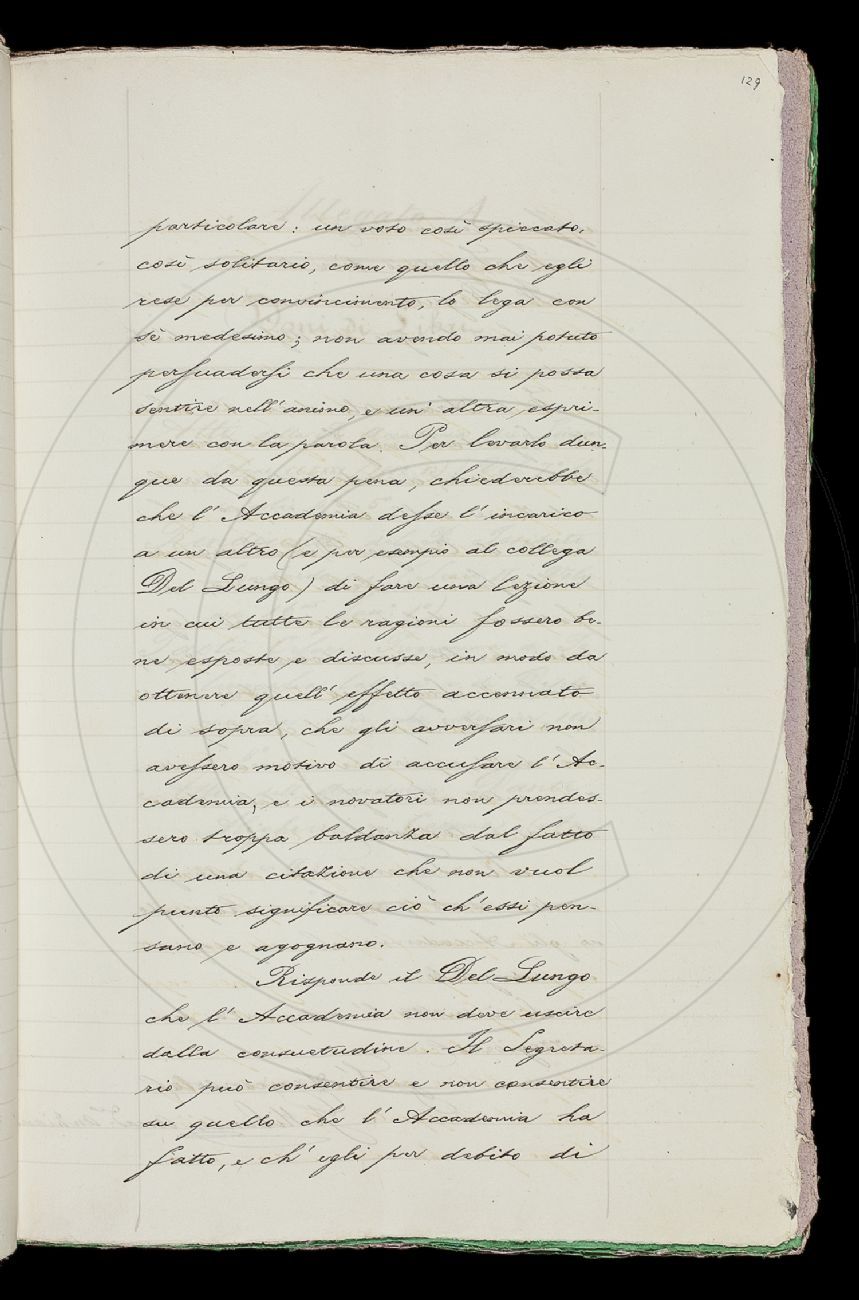 129
particolare: un voto così spiccato,
così solitario, come quello che egli
rese per convincimento, lo lega con
sè medesimo; non avendo mai potuto
persuadersi che una cosa si possa
sentire nell'animo, e un'altra espri-
mere con la parola. Per levarlo dun-
que da questa pena, chiederebbe
che l'Accademia desse l'incarico
a un altro (e per esempio al collega
Del Lungo) di fare una lezione
in cui tutte le ragioni fossero be-
ne esposte e discusse, in modo da
ottenere quell'effetto accennato
di sopra, che gli avversari non
avessero motivo di accusare l'Ac-
cademia, e i novatori non prendes-
sero troppa baldanza dal fatto
di una citazione che non vuol
punto significare ciò ch'essi pen-
sano e agognano.
Risponde il Del Lungo
che l'Accademia non deve uscire
dalla consuetudine. Il Segreta-
rio può consentire e non consentire
su quello che l'Accademia ha
fatto, e ch'egli per debito di